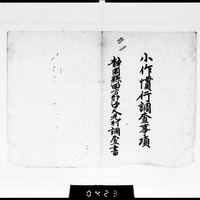 小作慣行調査事項
静岡縣田方郡中大見村調査書
0423